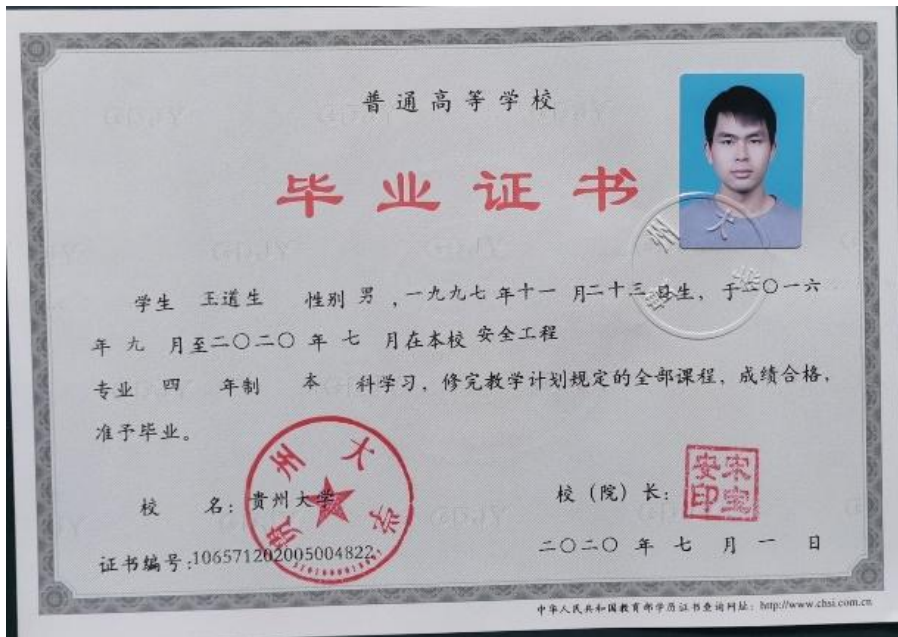 普通高等学校
毕业证书
学生 王道生 性别 男 ,一九九七 年十一 月二十三 日生, 于二〇一六
年 九 月至二〇二〇 年 七 月在本校 安全工程
专业 四 年制 本 科学习, 修完教学计划规定的全部课程, 成绩合格,
准予毕业。
贵州大学
校 名: 贵州大学
校 (院) 长:
宋宝安印
证书编号:106571202005004822
二〇二〇 年 七 月 一 日
中华人民共和国教育部学历证书查询网址: http://www.chsi.com.cn